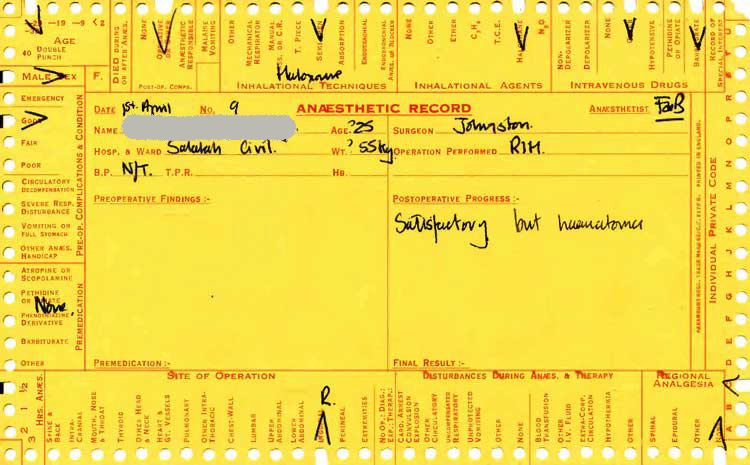 -29 -19 -9 <2
AGE
40 DOUBLE PUNCH
MALE SEX F.
DIED DURING OR AFTER ANÆS.
NONE
ANÆSTHETIC RESPONSIBLE
MALAISE VOMITING
OTHER
POST-OP. COMPS.
MECHANICAL RESPIRATOR
MANUAL
T. PIECE
ABSORPTION
ENDOTRACHEAL
Halozane
INHALATIONAL TECHNIQUES
NONE
OTHER
ETHER
C₃H₆
T.C.E.
N₂O
INHALATIONAL AGENTS
NON-DEPOLARIZER
DEPOLARIZER
NONE
HYPOTENSIVE
PETHIDINE OR OPIATE
OTHER
INTRAVENOUS DRUGS
RECORD OF SPECIAL INTEREST
EMERGENCY
GOOD
FAIR
POOR
CIRCULATORY DECOMPENSATION
SEVERE RESP. DISTURBANCE
VOMITING OR FULL STOMACH
OTHER ANÆS. HANDICAP
PRE-OP. COMPLICATIONS & CONDITION
ATROPINE OR SCOPOLAMINE
PETHIDINE OR OPIATE
None
PHENOTHIAZINE DERIVATIVE
BARBITURATE
OTHER
PREMEDICATION
DATE 1st April NO. 9 ANÆSTHETIC RECORD ANÆSTHETIST
NAME AGE 25 SURGEON Johnston.
HOSP. & WARD Salalah Civil. WT. 55kg OPERATION PERFORMED RIH.
B.P. N/T. T.P.R. HB.
PREOPERATIVE FINDINGS :- POSTOPERATIVE PROGRESS :-
Satisfactory but haematoma
PREMEDICATION :- FINAL RESULT :-
PRINTED IN ENGLAND.
INDIVIDUAL PRIVATE CODE
A B C D E F G H I J K L M N O P
3 2 1 ½ HRS. ANÆS.
SITE OF OPERATION
SPINE & BACK
INTRA-CRANIAL
MOUTH, NOSE & THROAT
THYROID
OTHER HEAD & NECK
HEART & GT. VESSELS
PULMONARY
OTHER INTRA-THORACIC
CHEST-WALL
LUMBAR
UPPER ABDOMINAL
LOWER ABDOMINAL
R.
PERINEAL
EXTREMITIES
NO OP.: DIAG.: EXP.: THERAP.:
DISTURBANCES DURING ANÆS. & THERAPY
CARD. ARREST CONVULSION EXPLOSION
OTHER CIRCULATORY
UNCORRECTED RESPIRATORY
UNPROTECTED VOMITING
OTHER
NONE
BLOOD TRANSFUSION
OTHER I.V. FLUID
EXTRA-CORP. CIRCULATION
HYPOTHERMIA
OTHER
REGIONAL ANALGESIA
SPINAL
EPIDURAL
OTHER